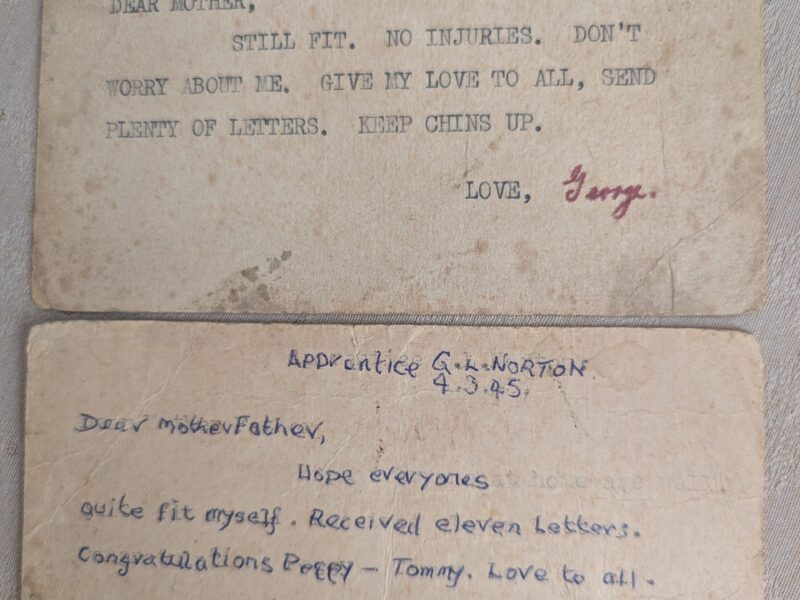 DEAR MOTHER,
STILL FIT. NO INJURIES. DON'T
WORRY ABOUT ME. GIVE MY LOVE TO ALL, SEND
PLENTY OF LETTERS. KEEP CHINS UP.
LOVE, George.
Apprentice G.L.NORTON.
4.3.45.
Dear Mother Father,
Hope everyones at home are well.
quite fit myself. Received eleven Letters.
Congratulations Peggy – Tommy. Love to all.